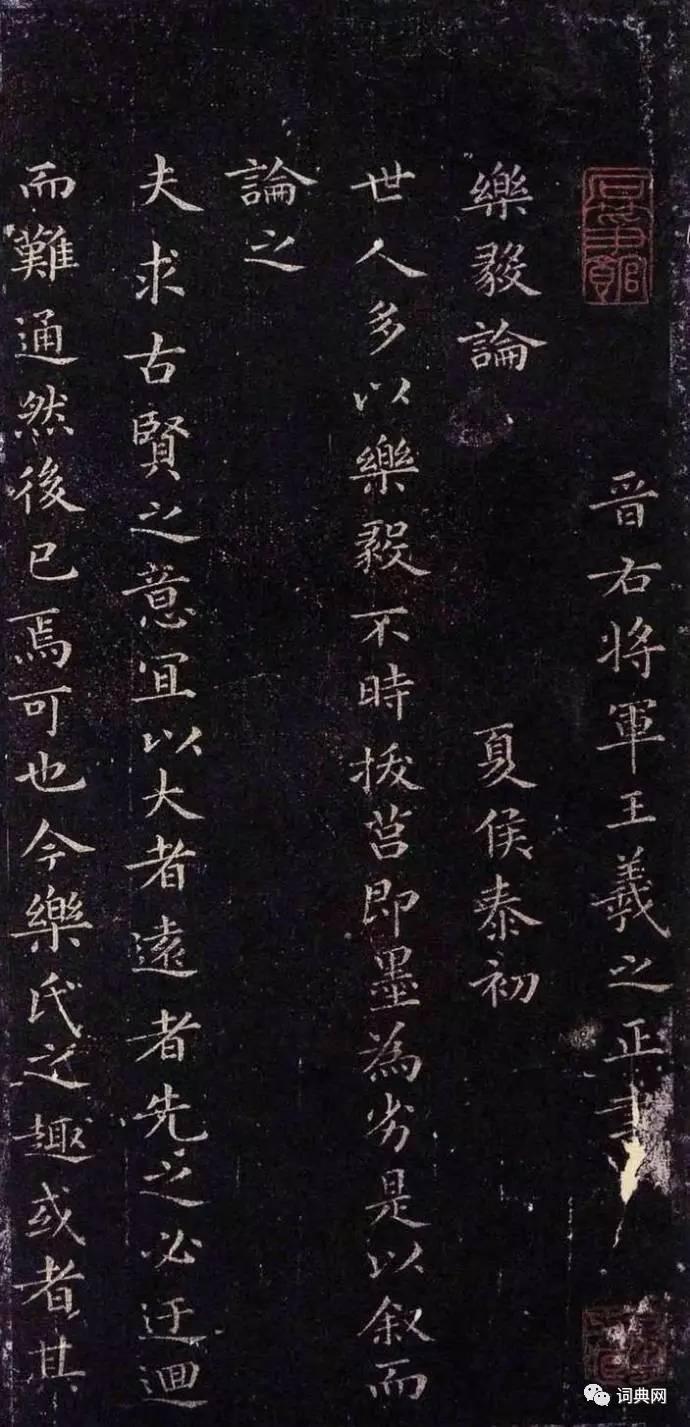 晉右将軍王羲之正書
樂毅論
夏侯泰初
世人多以樂毅不時拔莒即墨為劣是以叙而
論之
夫求古賢之意冝以大者遠者先之必迂迴
而難通然後已焉可也今樂氏之趣或者其
词典网